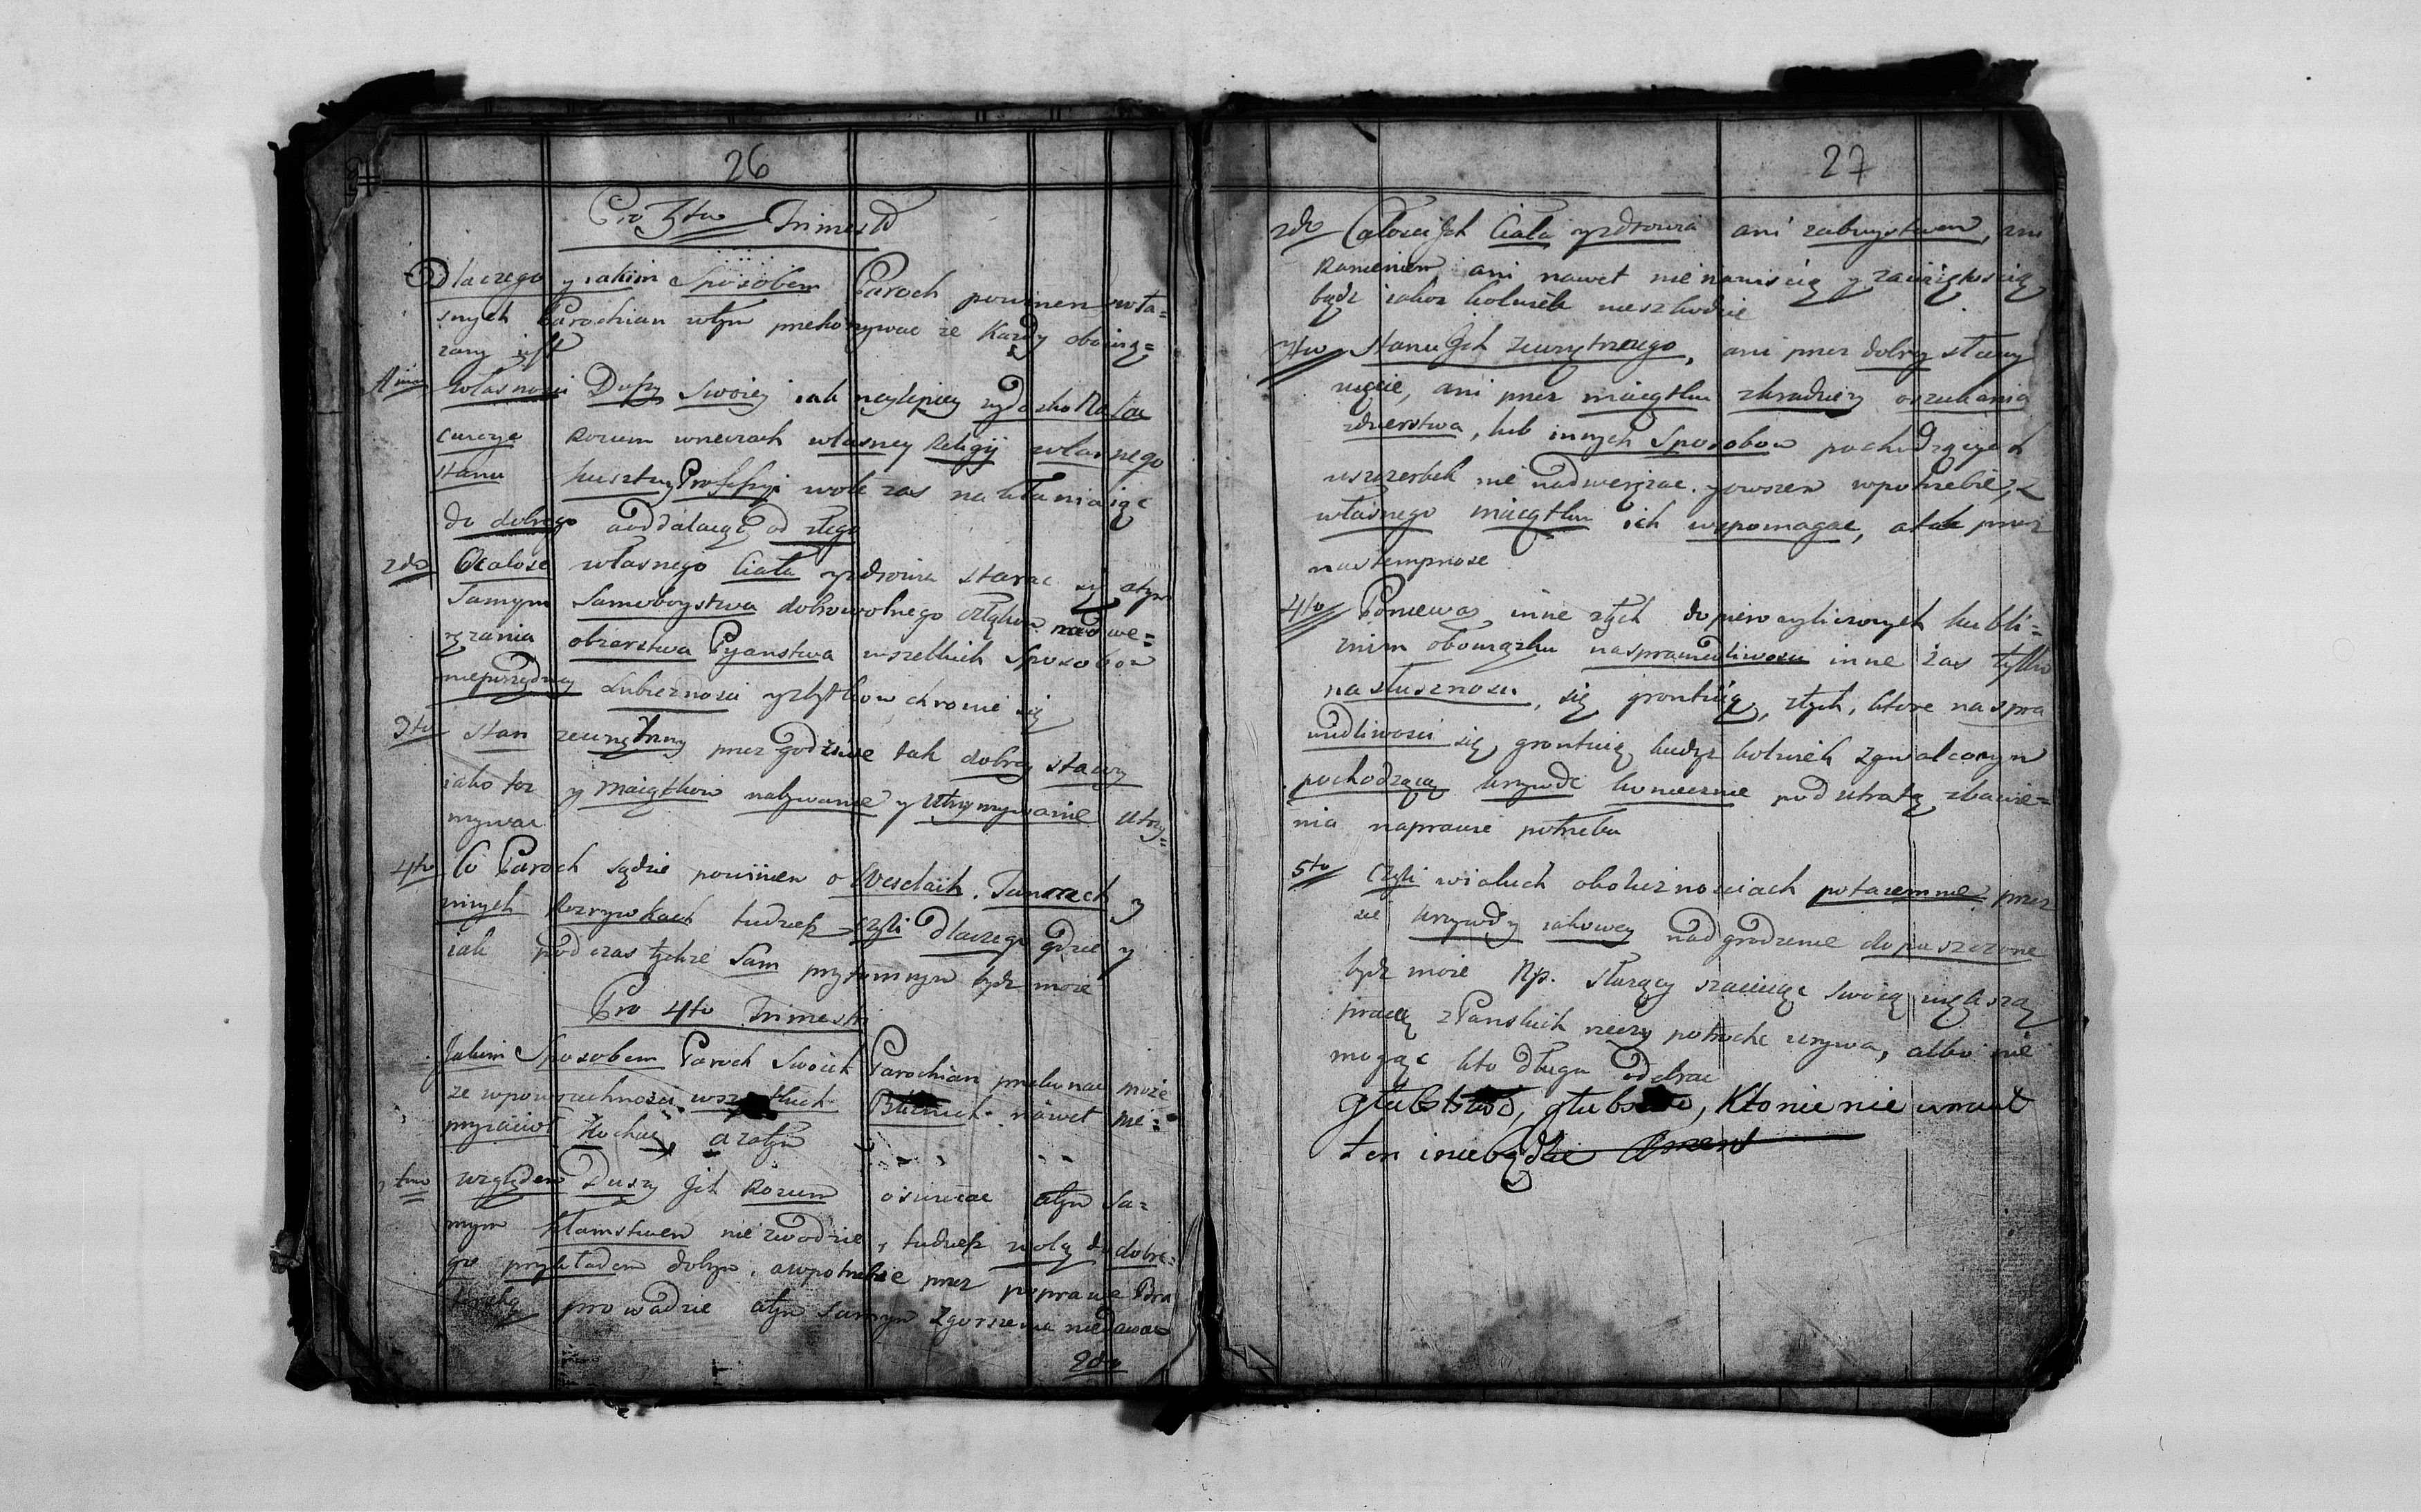 26
Pro 3tio Trimestri
Dlaczego y iakim Sposobem Paroch powinen wła=
snych Parochian wtym przekonywac ze Kazdy obowią=
zany iest
1mo własnosci Duszy Swoiey iak naylepiey wydoskonalac
cwicząc Rozum wnewach własney Religij własnego
stanu kusztuy Professyi wole zas nakłaniaiąc
do dobrego aoddalaiąc od złego
2do Ocalosc własnego Ciała yzdrowia starac się atym
Samym Samoboystwa dobrowolnego członkow nadwe=
ręzania obzarstwa Pyanstwa wszelkich Sposobow
nieporządney Lubieznosci yzbytkow chronic się
3tio Stan zewnętrzny przez godziwe tak dobrey sławy
iako tez y maiątkow nabywanie y utrzymywanie utrzy=
mywac
4to Co Paroch sądzic powinien o Weselach, Tancach y
innych Rozrywkach tudziesz czyli dlaczego gdzie y
iak podczas tychze Sam przytomnym bydz moze
Pro 4to Trimestri
Jakim Sposobem Paroch Swoich Parochian przekonac moze
ze wpowszechnosci wszystkich Bliznich nawet nie=
przyiaciol Kochac, a zatym
1mo względem Duszy Jch Rozum oswiecac atym sa=
mym kłamstwem nie zwodzic, tudziesz wolę do dobre=
go przykładem dobrym, awpotrzebie przez poprawę Bra
terską prowadzic atym samym zgorszenia niedawac
2do
27
2do Całosci Jch Ciała yzdrowia ani zaboystwem, zra
nieniem ani nawet nienawiscią y zawziętoscią
bądz iakoz kolwiek nieszkodzic
3tio Stanu Jch zewnętrznego, ani przez dobrey sławy
uięcie, ani przez maiątku zkradziezy oszukania
zdzierstwa, lub innych Sposobow pochodzących
uszczerbek nie nadweręzac, yowszem wpotrzebie, z
własnego maiątku ich wspomagac, atak przez
nastempnosc
4to Poniewaz inne ztych dopiero wyliczonych ku bli=
znim obowiązku nasprawiedliwosci inne zas tylko
nasłusznosci, się grontuią, ztych, ktore naspra
wiedliwosci się grontuią kiedyz kolwiek zgwałconym
pochodzącą krzywdę koniecznie pod utratą zbawie=
nia naprawic potrzeba
5to Czyli wiakich okolicznosciach potaiemne przez
się krzywdy iakowey nadgrodzenie dopuszczone
bydz moze Np. słuzący szacuiąc swoię większą
pracę zPanskich rzeczy potroche urywa, albo nie
mogąc kto długu odebrac
głubstwo, głubstwo, Kto nie nie umarł
ten i niebędzie Amen